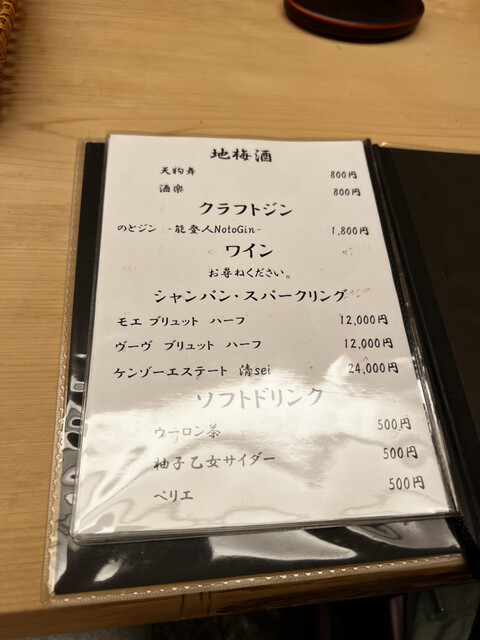 地梅酒
天狗舞 800円
酒樂 800円
クラフトジン
のどジン -能登人NotoGin- 1,800円
ワイン
お尋ねください。
シャンパン・スパークリング
モエ ブリュット ハーフ 12,000円
ヴーヴ ブリュット ハーフ 12,000円
ケンゾーエステート 清sei 24,000円
ソフトドリンク
ウーロン茶 500円
柚子乙女サイダー 500円
ペリエ 500円